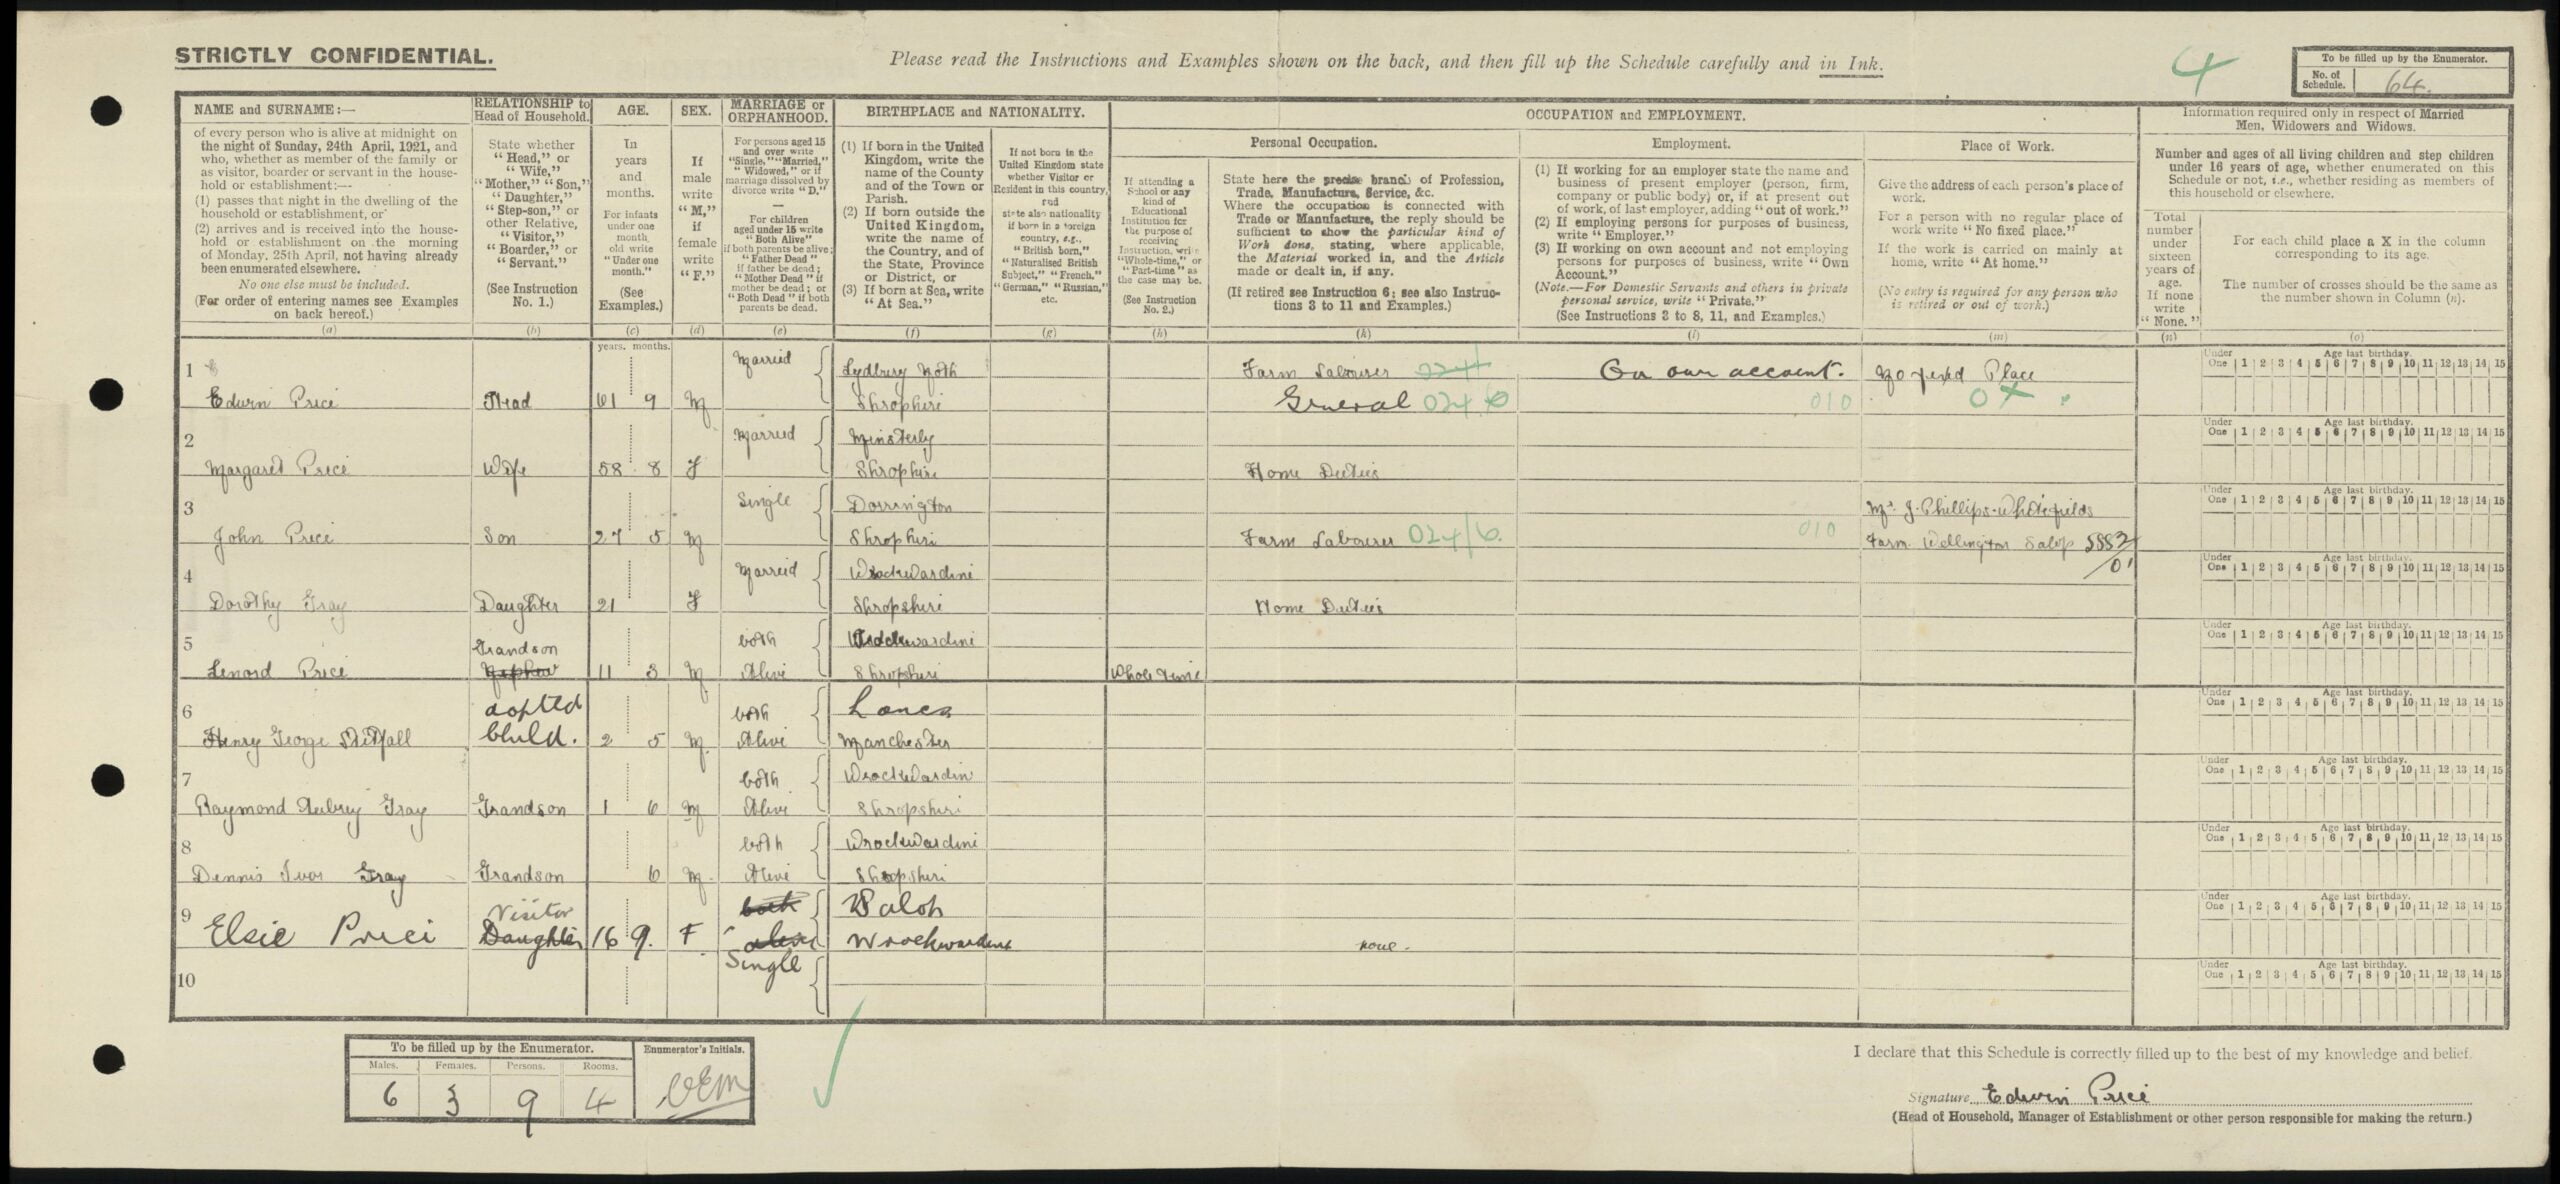 STRICTLY CONFIDENTIAL.
Please read the Instructions and Examples shown on the back, and then fill up the Schedule carefully and in Ink.
4
To be filled up by the Enumerator.
No. of Schedule. 64.
NAME and SURNAME:—
of every person who is alive at midnight on
the night of Sunday, 24th April, 1921, and
who, whether as member of the family or
as visitor, boarder or servant in the house-
hold or establishment:—
(1) passes that night in the dwelling of the
household or establishment, or
(2) arrives and is received into the house-
hold or establishment on the morning
of Monday, 25th April, not having already
been enumerated elsewhere.
No one else must be included.
(For order of entering names see Examples
on back hereof.)
(a)
RELATIONSHIP to
Head of Household.
State whether
"Head," or
"Wife,"
"Mother," "Son,"
"Daughter,"
"Step-son," or
other Relative,
"Visitor,"
"Boarder," or
"Servant."
(See Instruction
No. 1.)
(b)
AGE.
In
years
and
months.
For infants
under one
month
old write
"Under one
month."
(See
Examples.)
(c)
SEX.
If
male
write
"M,"
if
female
write
"F."
(d)
MARRIAGE or
ORPHANHOOD.
For persons aged 15
and over write
"Single," "Married,"
"Widowed," or if
marriage dissolved by
divorce write "D."
—
For children
aged under 15 write
"Both Alive"
if both parents be alive;
"Father Dead"
if father be dead;
"Mother Dead" if
mother be dead; or
"Both Dead" if both
parents be dead.
(e)
BIRTHPLACE and NATIONALITY.
(1) If born in the United
Kingdom, write the
name of the County
and of the Town or
Parish.
(2) If born outside the
United Kingdom,
write the name of
the Country, and of
the State, Province
or District, or
(3) If born at Sea, write
"At Sea."
(f)
If not born in the
United Kingdom state
whether Visitor or
Resident in this country,
and
state also nationality
if born in a foreign
country, e.g.,
"British born,"
"Naturalised British
Subject," "French,"
"German," "Russian,"
etc.
(g)
OCCUPATION and EMPLOYMENT.
If attending a
School or any
kind of
Educational
Institution for
the purpose of
receiving
Instruction, write
"Whole-time," or
"Part-time" as
the case may be.
(See Instruction
No. 2.)
(h)
Personal Occupation.
State here the precise branch of Profession,
Trade, Manufacture, Service, &c.
Where the occupation is connected with
Trade or Manufacture, the reply should be
sufficient to show the particular kind of
Work done, stating, where applicable,
the Material worked in, and the Article
made or dealt in, if any.
(If retired see Instruction 6; see also Instruc-
tions 3 to 11 and Examples.)
(k)
Employment.
(1) If working for an employer state the name and
business of present employer (person, firm,
company or public body) or, if at present out
of work, of last employer, adding "out of work."
(2) If employing persons for purposes of business,
write "Employer."
(3) If working on own account and not employing
persons for purposes of business, write "Own
Account."
(Note.—For Domestic Servants and others in private
personal service, write "Private.")
(See Instructions 3 to 8, 11, and Examples.)
(l)
Place of Work.
Give the address of each person's place of
work.
For a person with no regular place of
work write "No fixed place."
If the work is carried on mainly at
home, write "At home."
(No entry is required for any person who
is retired or out of work.)
(m)
Information required only in respect of Married
Men, Widowers and Widows.
Number and ages of all living children and step children
under 16 years of age, whether enumerated on this
Schedule or not, i.e., whether residing as members of
this household or elsewhere.
Total
number
under
sixteen
years of
age.
If none
write
"None."
(n)
For each child place a X in the column
corresponding to its age.
The number of crosses should be the same as
the number shown in Column (n).
(o)
years. months.
Under One Age last birthday. 1 2 3 4 5 6 7 8 9 10 11 12 13 14 15
1 Married Lydbury Noth Farm Labourer 024 On own account. No fixed Place
Edwin Price Head 61 9 M Shropheri General 024/6 010 0X
Under One Age last birthday. 1 2 3 4 5 6 7 8 9 10 11 12 13 14 15
2 Married Minsterly
Margaret Price Wife 58 8 F Shropheri Home Duties
Under One Age last birthday. 1 2 3 4 5 6 7 8 9 10 11 12 13 14 15
3 Single Dorrington Mr J. Phillips. Whitefields
John Price Son 27 5 M Shropheri Farm Labourer 024/6 010 Farm. Wellington Salop
Under One Age last birthday. 1 2 3 4 5 6 7 8 9 10 11 12 13 14 15
4 Married Wrockwardine
Dorothy Gray Daughter 21 F Shropsheri Home Duties
Under One Age last birthday. 1 2 3 4 5 6 7 8 9 10 11 12 13 14 15
5 Grandson both Wrockwardine
Lenord Price Nephew 11 3 M Alive Shropsheri Whole Time
Under One Age last birthday. 1 2 3 4 5 6 7 8 9 10 11 12 13 14 15
6 adopted both Lancs
Henry George child. 2 5 M Alive Manchester
Under One Age last birthday. 1 2 3 4 5 6 7 8 9 10 11 12 13 14 15
7 both Wrockwardin
Raymond Aubrey Gray Grandson 1 6 M Alive Shropsheri
Under One Age last birthday. 1 2 3 4 5 6 7 8 9 10 11 12 13 14 15
8 both Wrockwardine
Dennis Ivor Gray Grandson 6 M Alive Shropsheri
Under One Age last birthday. 1 2 3 4 5 6 7 8 9 10 11 12 13 14 15
9 Visitor both Salop
Elsie Price Daughter 16 9. F alive Wrockwardine none.
Single
Under One Age last birthday. 1 2 3 4 5 6 7 8 9 10 11 12 13 14 15
10
To be filled up by the Enumerator.
Males. Females. Persons. Rooms.
6 3 9 4
Enumerator's Initials.
I declare that this Schedule is correctly filled up to the best of my knowledge and belief.
Signature Edwin Price
(Head of Household, Manager of Establishment or other person responsible for making the return.)